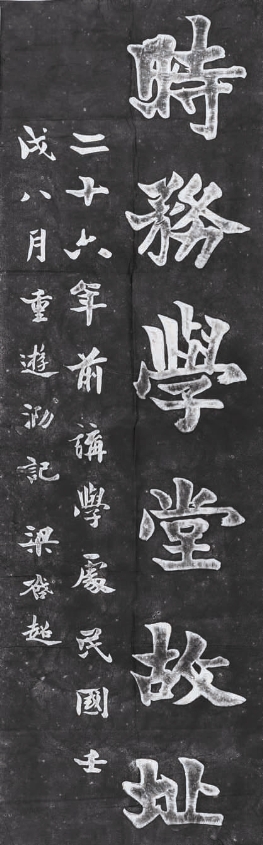 時務學堂故址
二十六年前講學處民國壬
戌八月重遊泐記 梁啓超